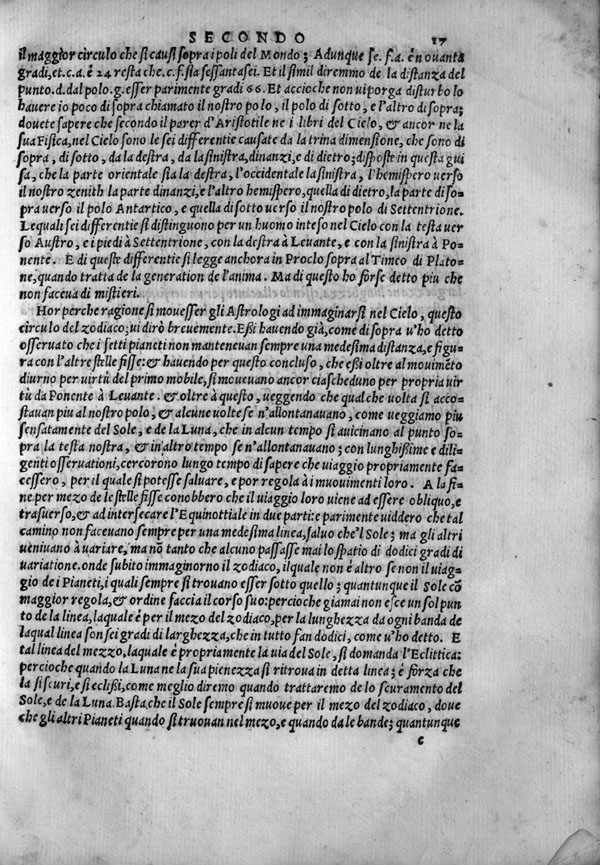 SECONDO 17
il maggior circulo che si causi sopra i poli del Mondo; Adunque se. f.a. è nouanta
gradi, et.c.a. è 24 resta che.c.f. sia sessanta sei. Et il simil diremmo de la distanza del
punto.d. dal polo.g. esser parimente gradi 66. Et accioche non ui porga disturbo lo
hauere io poco di sopra chiamato il nostro polo, il polo di sotto, e l'altro di sopra;
douete sapere che secondo il parer d'Aristotile ne i libri del Cielo, & ancor ne la
sua Fisica, nel Cielo sono le sei differentie causate da la trina dimensione, che sono di
sopra, di sotto, da la destra, da la sinistra, dinanzi, e di dietro; disposte in questa gui
sa, che la parte orientale sia la destra, l'occidentale la sinistra, l'hemispero verso
il nostro zenith la parte dinanzi, e l'altro hemispero, quella di dietro, la parte di so=
pra uerso il polo Antartico, e quella di sotto uerso il nostro polo di Settentrione.
Lequali sei differentie si distinguono per un huomo inteso nel Cielo con la testa uer
so Austro, e i piedi à Settentrione, con la destra à Leuante, e con la sinistra à Po=
nente. E di queste differentie si legge anchora in Proclo sopra al Timeo di Plato=
ne, quando tratta de la generation de l'anima. Ma di questo ho forse detto piu che
non faceua di mistieri.
Hor perche ragione si mouesser gli Astrologi ad immaginarsi nel Cielo, questo
circulo del zodiaco; ui dirò breuemente. Eßi hauendo già, come di sopra u'ho detto
osseruato che i setti pianeti non manteneuan sempre una medesima distanza, e figu=
ra con l'altre stelle fisse: & hauendo per questo concluso, che eßi oltre al mouimēto
diurno per uirtù del primo mobile, si moueuano ancor ciascheduno per propria uir
tù da Ponente à Leuante. & oltre à questo, ueggendo che qualche uolta si acco=
stauan piu al nostro polo, & alcune uolte se n'allontanauano, come ueggiamo piu
sensatamente del Sole, e de la Luna, che in alcun tempo si auicinano al punto so=
pra la testa nostra, & in altro tempo se n'allontanauano; con lunghißime e dili=
genti osseruationi, cercorono lungo tempo di sapere che uiaggio propriamente fa=
cessero, per il quale si potesse saluare, e por regola à i mouimenti loro. A la fi=
ne. per mezo de le stelle fisse conobbero che il uiaggio loro uiene ad essere obliquo, e
trasuerso, & ad intersecare l'Equinottiale in due parti: e parimente uiddero che tal
camino non faceuano sempre per una medesima linea, saluo che'l Sole; ma gli altri
ueniuano à uariare, ma nō tanto che alcuno passasse mai lo spatio di dodici gradi di
uariatione. onde subito immaginorno il zodiaco, il quale non è altro se non il uiag=
gio de i Pianeti, i quali sempre si trouano esser sotto quello; quantunque il Sole cō
maggior regola, & ordine faccia il corso suo: percioche giamai non esce un sol pun
to de la linea, laquale è per il mezo del zodiaco, per la lunghezza da ogni banda de
laqual linea son sei gradi di larghezza, che in tutto fan dodici, come u'ho detto. E
tal linea del mezzo, laquale è propriamente la uia del Sole, si domanda l'Eclittica:
percioche quando la Luna ne la sua pienezza si ritroua in detta linea; è forza che
la si scuri, e si eclißi, come meglio diremo quando trattaremo de lo scuramento del
Sole, e de la Luna. Basta, che il Sole sempre si muoue per il mezo del zodiaco, doue
che gli altri Pianeti quando si truouan nel mezo, e quando da le bande; quantunque
c